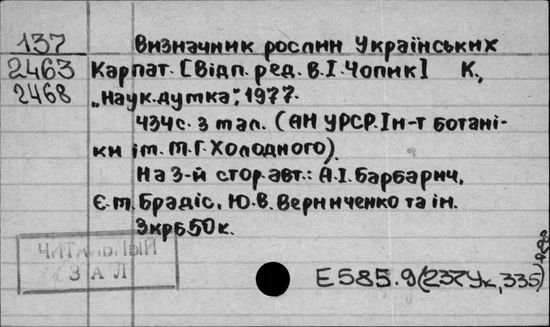 137 Визначник рослин Українських
2463 Карпат. [Відп. ред. В.І. Чопик] К.,
2468 „Наук.думка", 1977.
434с. з мал. (АН УРСР. Ін-т ботані-
ки ім. М.Г. Холодного).
На 3-й стор. авт.: А.І. Барбарич,
Є.М. Брадіс, Ю.В. Верниченко та ін.
3крб50к.
ЧИТАЛЬНЫЙ
ЗАЛ
Е585.9(237Ук,335)